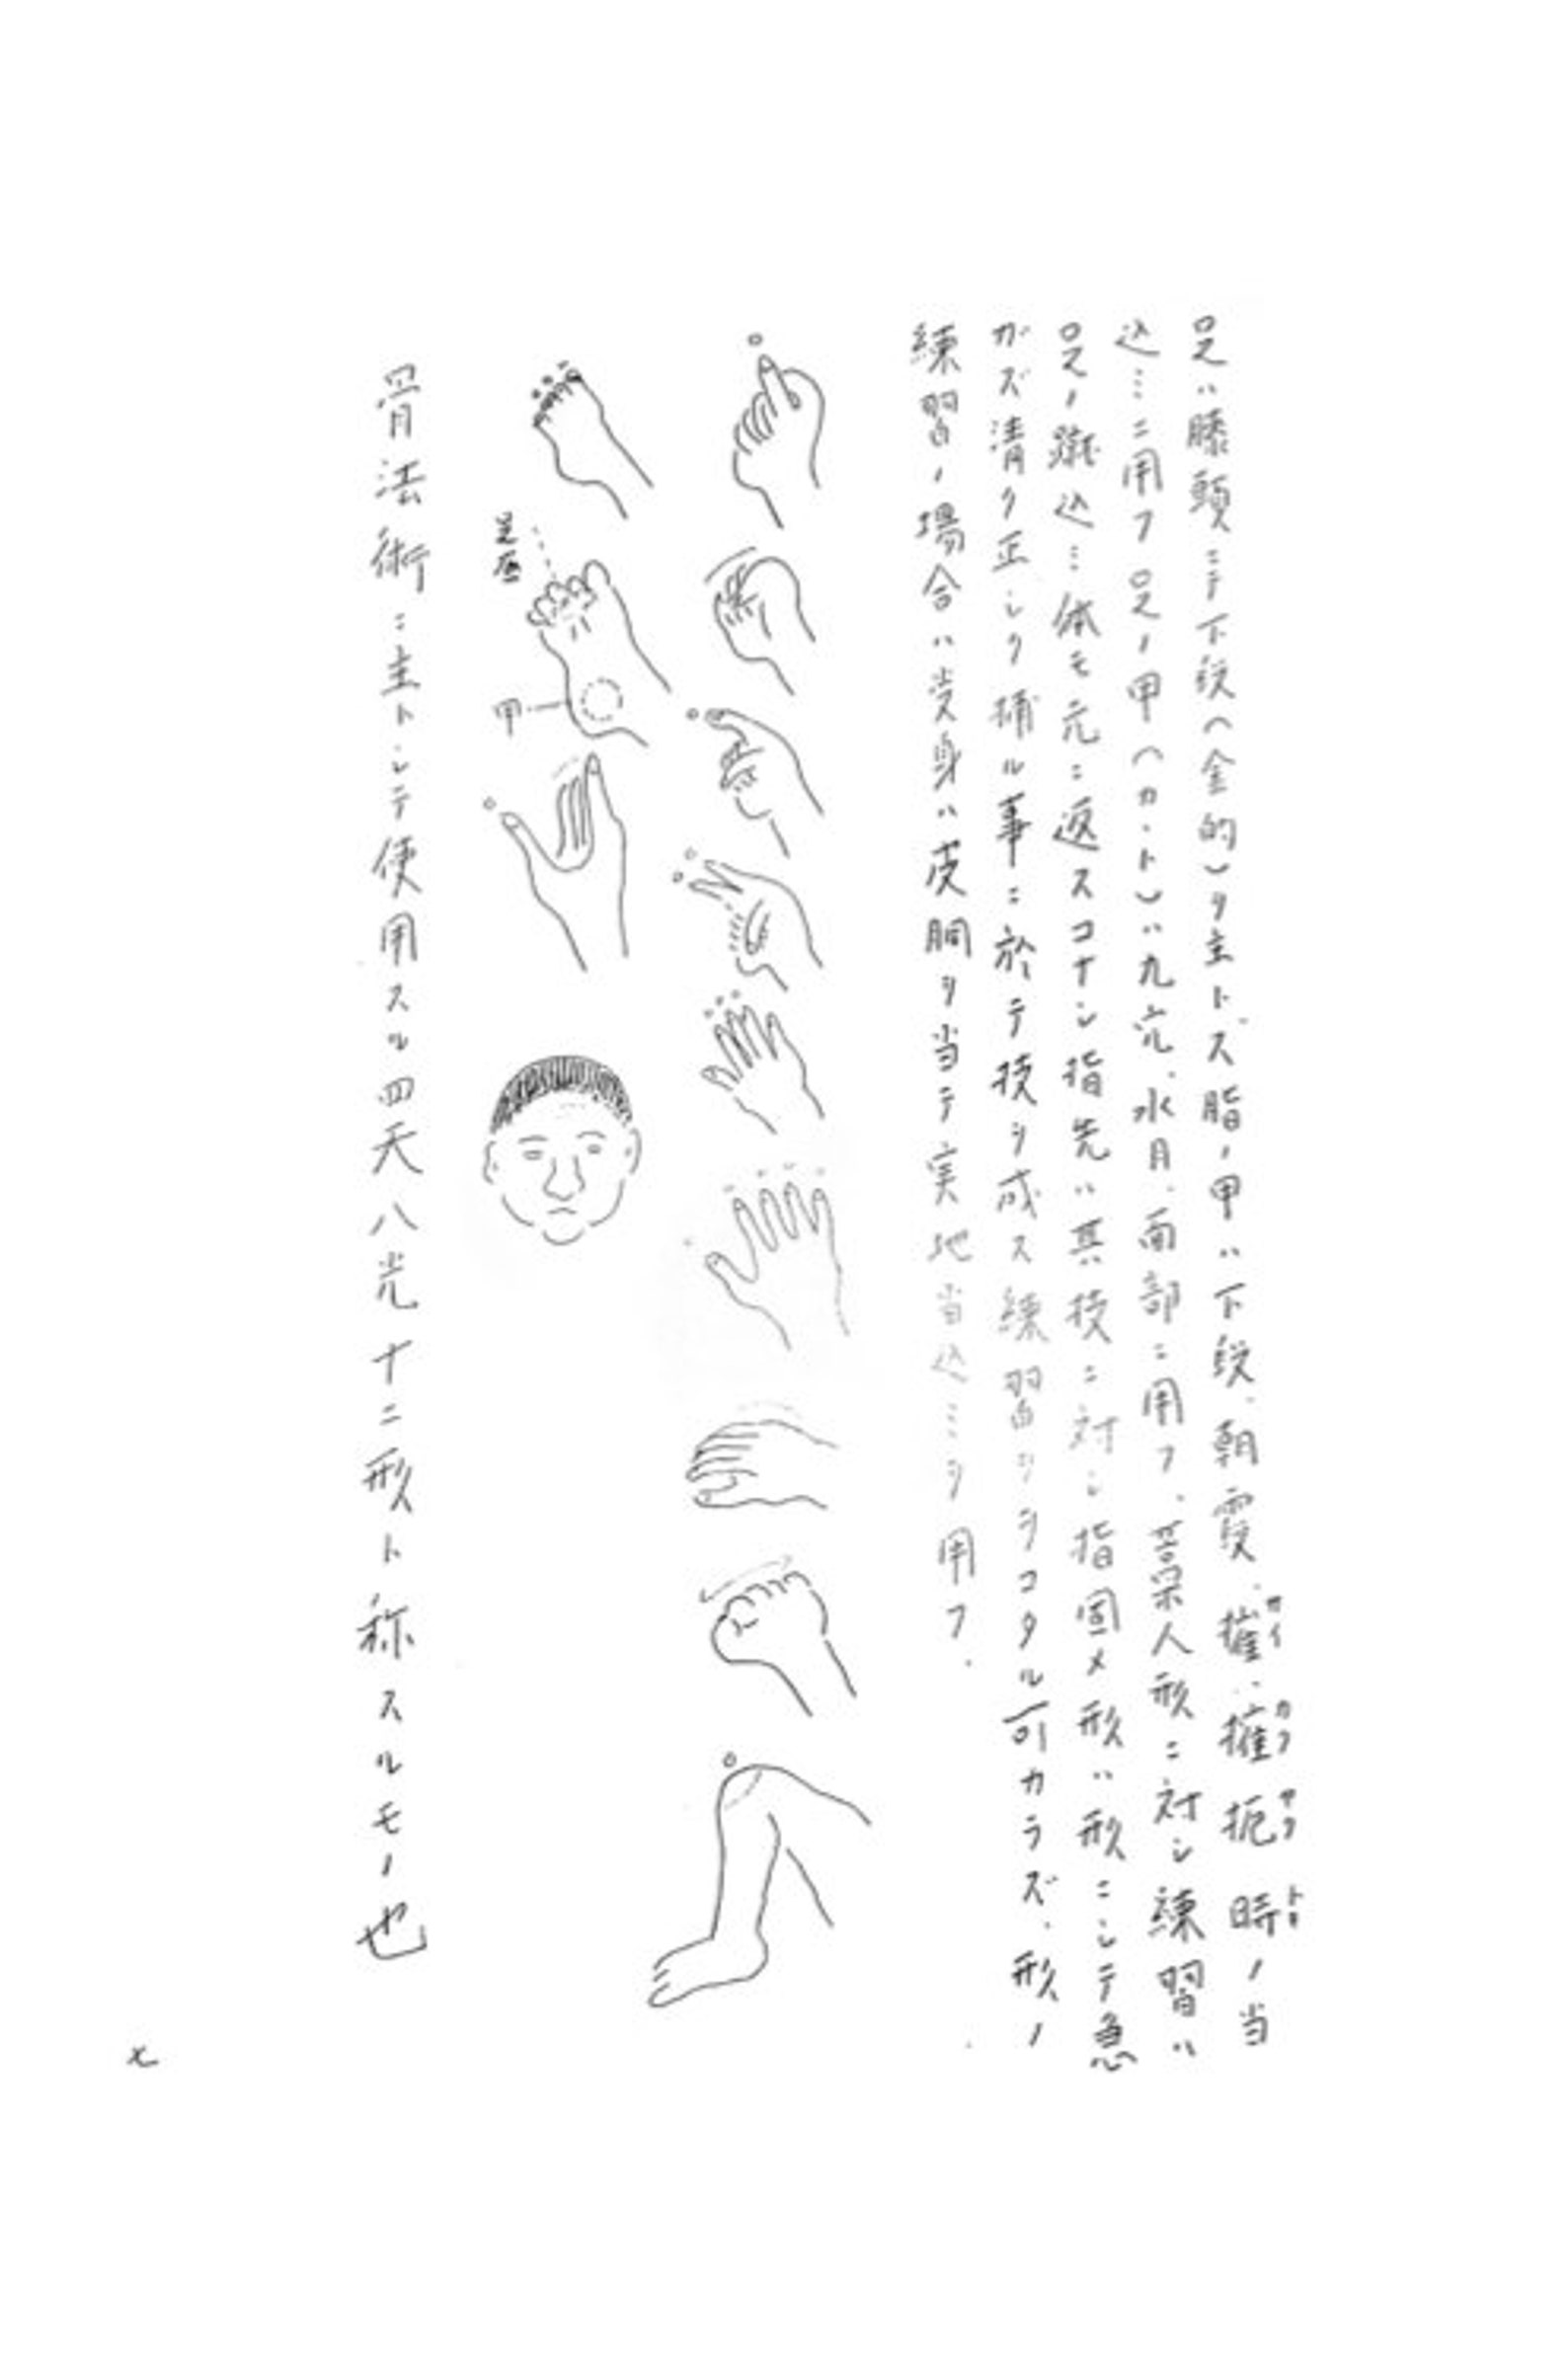 足ハ膝頭ニテ下段(金的)ヲ主トズ脂ノ甲ハ下段、朝霞、摧ハ擁扼時ノ当
込ミニ用フ足ノ甲(カヽト)ハ九完、水月、面部ニ用フ、菩果人形ニ対シ練習ハ
足ノ蹴込ミ体モ元ニ返スコナシ指先ハ其技ニ対シ指固メ形ハ形ニシテ急
ガズ清ク正シク捕ル事ニ於テ技ヲ成ス練習リヲコタル可カラズ、形ノ
練習ノ場合ハ受身ハ皮胴ヲ当テ実地当込ミヲ用フ.
カイ
カフ
ヤク
トキ
足
甲
骨法術ニ主トシテ使用スル四天八光十二形ト称スルモノ也
七